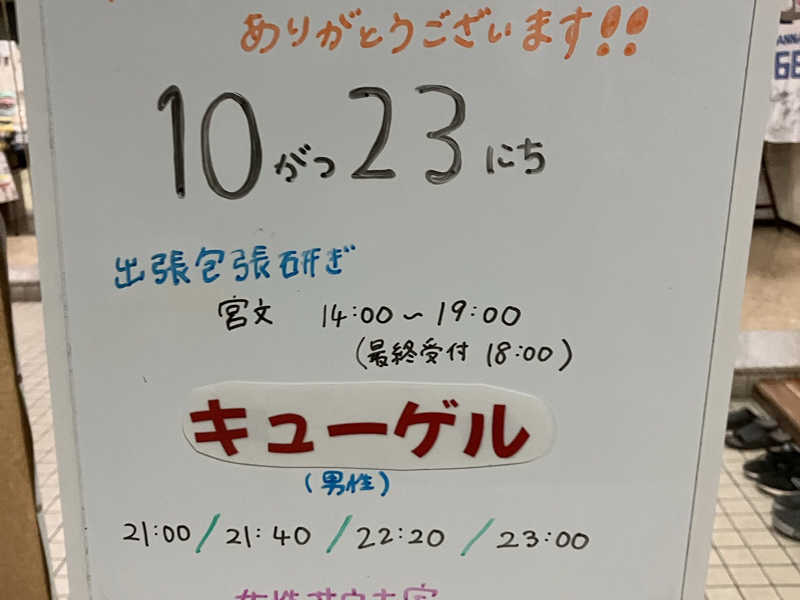 ありがとうございます!!
10がつ23にち
出張包張研ぎ
宮文 14:00~19:00
(最終受付 18:00)
キューゲル
(男性)
21:00/21:40/22:20/23:00